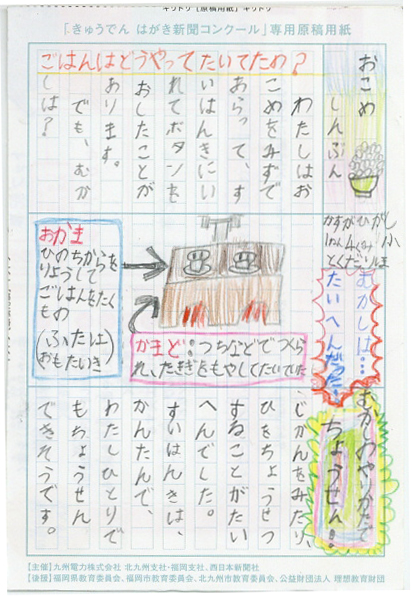 「きゅうでん はがき新聞コンクール」専用原稿用紙
おこめ
しんぶん
かすがひがし小
1ねん4くみ
ごはんはどうやってたいてため？
わたしはお
こめをみずで
あらって、す
いはんきにい
れてボタンを
おしたことが
あります。
でも、むか
しは？
むかしは…
たいへん
おかま
ひのちからを
りようして
ごはんをたく
もの
（ふたは
おもたいき）
かまど：つちなどでつくら
れ、たきぎをもやしてたいていた
むかしのやりかたで
ちょうせん！！
じかんをみたり、
ひをちょうせつ
することがたい
へんでした。
すいはんきは、
かんたんで、
わたしひとりで
もちょうせん
できそうです。
【主催】九州電力株式会社 北九州支社・福岡支社、西日本新聞社
【後援】福岡県教育委員会、福岡市教育委員会、北九州市教育委員会、公益財団法人 理想教育財団